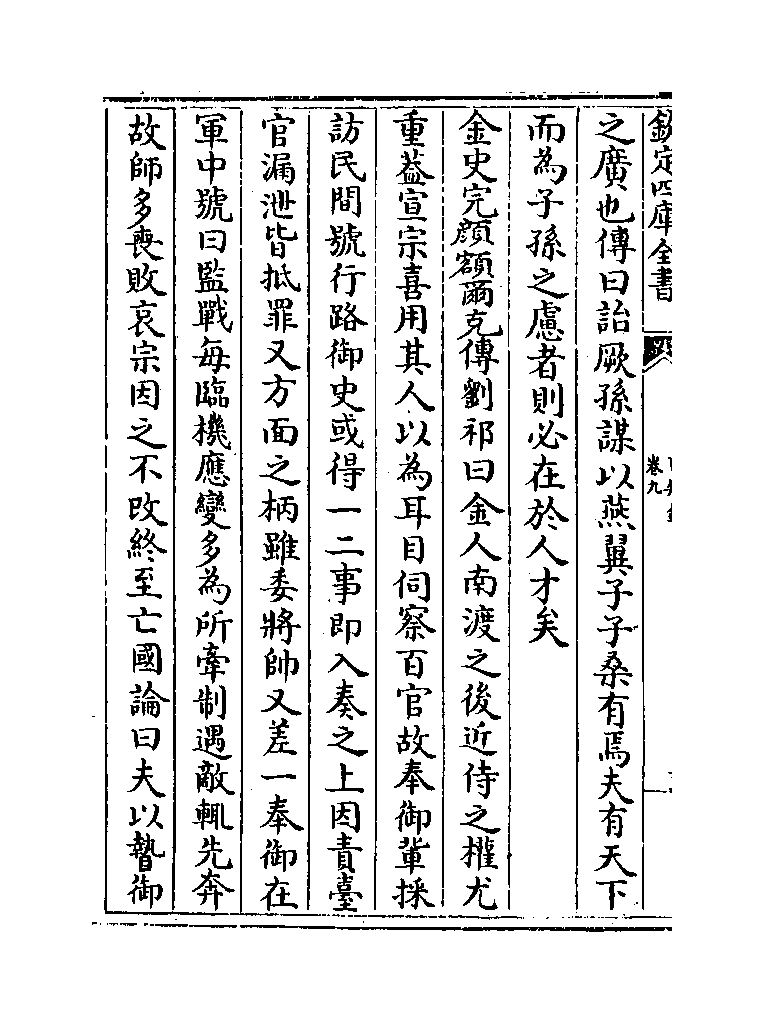 欽定四庫全書
卷九
之廣也傳曰詒厥孫謀以燕翼子子桑有焉夫有天下
而為子孫之慮者則必在於人才矣
金史完顔額爾克傳劉祁曰金人南渡之後近侍之權尤
重葢宣宗喜用其人以為耳目伺察百官故奉御軰採
訪民間號行路御史或得一二事即入奏之上因責臺
官漏泄皆抵罪又方面之柄雖委將帥又差一奉御在
軍中號曰監戰每臨機應變多為所牽制遇敵輒先奔
故師多喪敗哀宗因之不改終至亡國論曰夫以暬御